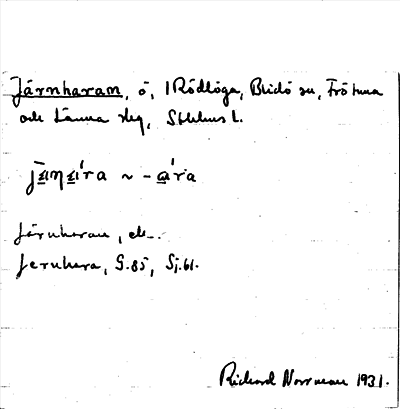 Järnharan, ö, i Rödlöga, Blidö sn, Frötuna
och Länna slg, Sthlms l.
jæ̀ṇæ´ra ~ -a´ra
Järnharan, ek.
Jernhara, G.85, Sj.61.
Rickard Norrman 1931.